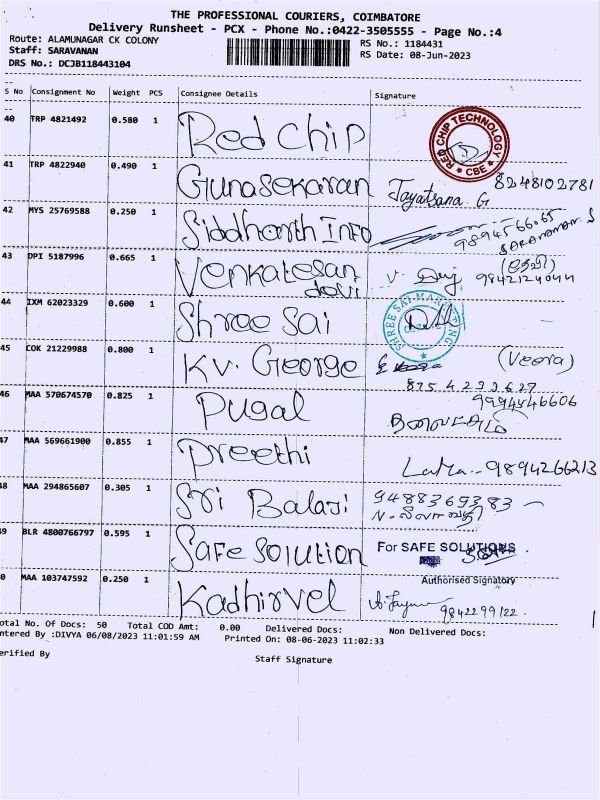 THE PROFESSIONAL COURIERS, COIMBATORE
Delivery Runsheet - PCX - Phone No.:0422-3505555 - Page No.:4
Route: ALAMUNAGAR CK COLONY
RS No.: 1184431
Staff: SARAVANAN
RS Date: 08-Jun-2023
DRS No.: DCJB118443104
S No Consignment No Weight PCS Consignee Details Signature
40 TRP 4821492 0.580 1 Red Chip RED CHIP TECHNOLOGY CBE
41 TRP 4822940 0.490 1 Gunasekaran 8248102781
G
42 MYS 25769588 0.250 1 Siddharth Info 9894566065
43 DPI 5187996 0.665 1 Venkatesan V.
devi 9842124044
44 IXM 62023329 0.600 1 Shree Sai SHREE SAI
45 COK 21229988 0.800 1 KV. George (Veera)
8754233627
46 MAA 570674570 0.825 1 Pugal 9994546606
47 MAA 569661900 0.855 1 Preethi Latha - 9894266213
48 MAA 294865607 0.305 1 Sri Balaji 9488369383
49 BLR 4800766797 0.595 1 Safe Solution For SAFE SOLUTIONS
Authorised Signatory
0 MAA 103747592 0.250 1 Kadhirvel 9842299122
otal No. Of Docs: 50 Total COD Amt: 0.00 Delivered Docs: Non Delivered Docs:
ntered By :DIVYA 06/08/2023 11:01:59 AM Printed On: 08-06-2023 11:02:33
erified By
Staff Signature